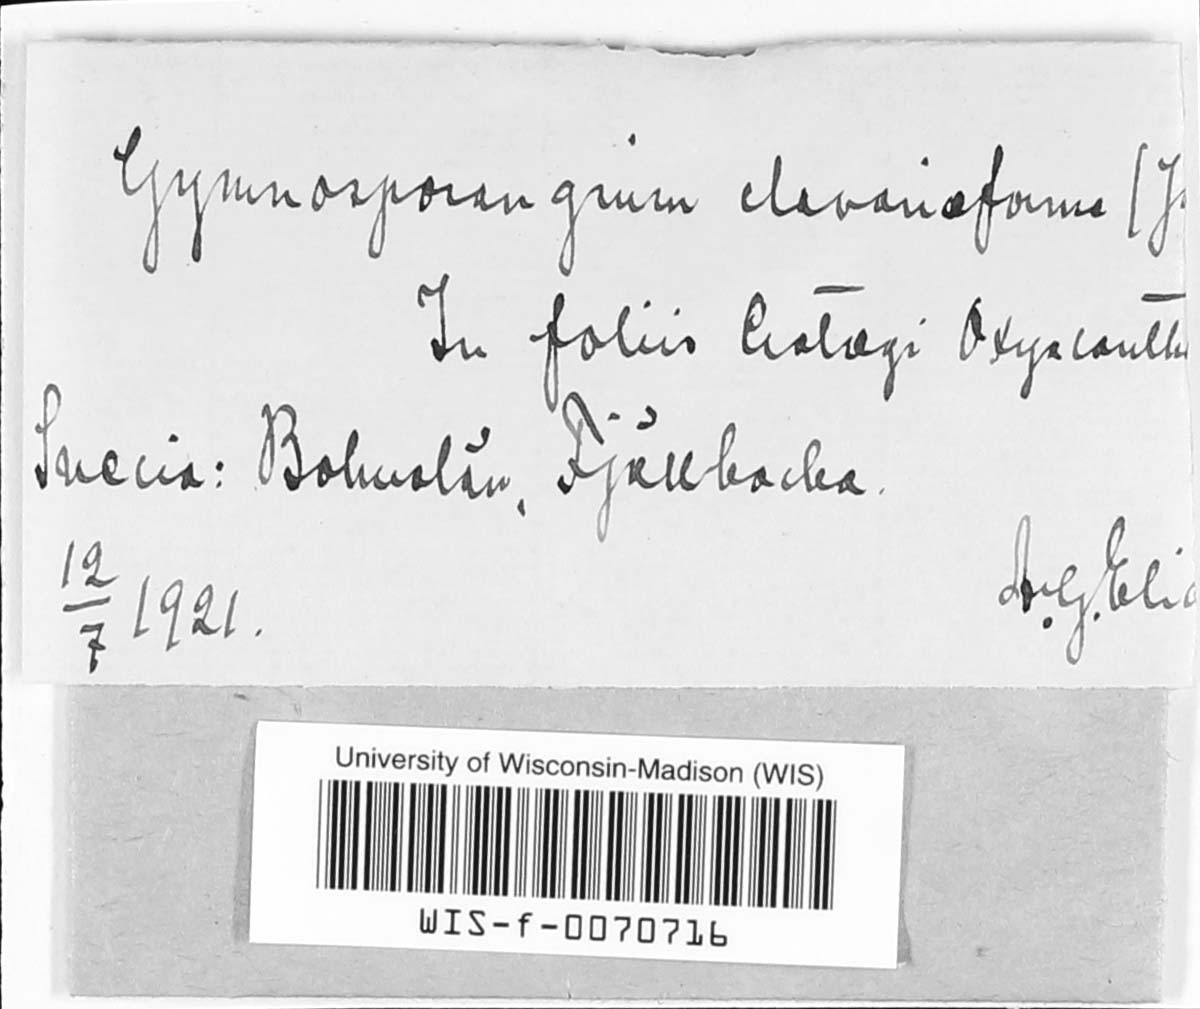 Gymnosporangium clavariæforme (J
In foliis Cratægi Oxyacanth
Suecia: Bohuslän, Fjällbacka.
12/7 1921.
A.G. Elia
University of Wisconsin-Madison (WIS)
WIS-f-0070716